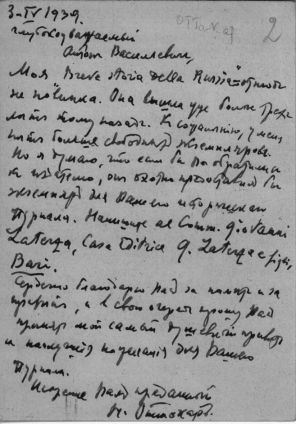 3-IV 1939.
Оттокар
2
Глубокоуважаемый
Антон Васильевич,
Моя Breve storia della Russia отнюдь
не новинка. Она вышла уже более трех
лет тому назад. К сожалению, у меня
нет больше свободных экземпляров.
Но я думаю, что если бы Вы обратились
к издателю, он охотно предоставил бы
экземпляр для Вашего
журнала. Напишите al Comm. Giovanni
Laterza, Casa Editrice G. Laterza e figli,
Bari.
Сердечно благодарю Вас за память и за
привет, и в свою очередь прошу Вас
принять мой самый душевный привет
и наилучшие пожелания для Вашего
журнала.
Искренне Вам преданный
Н. Оттокар.